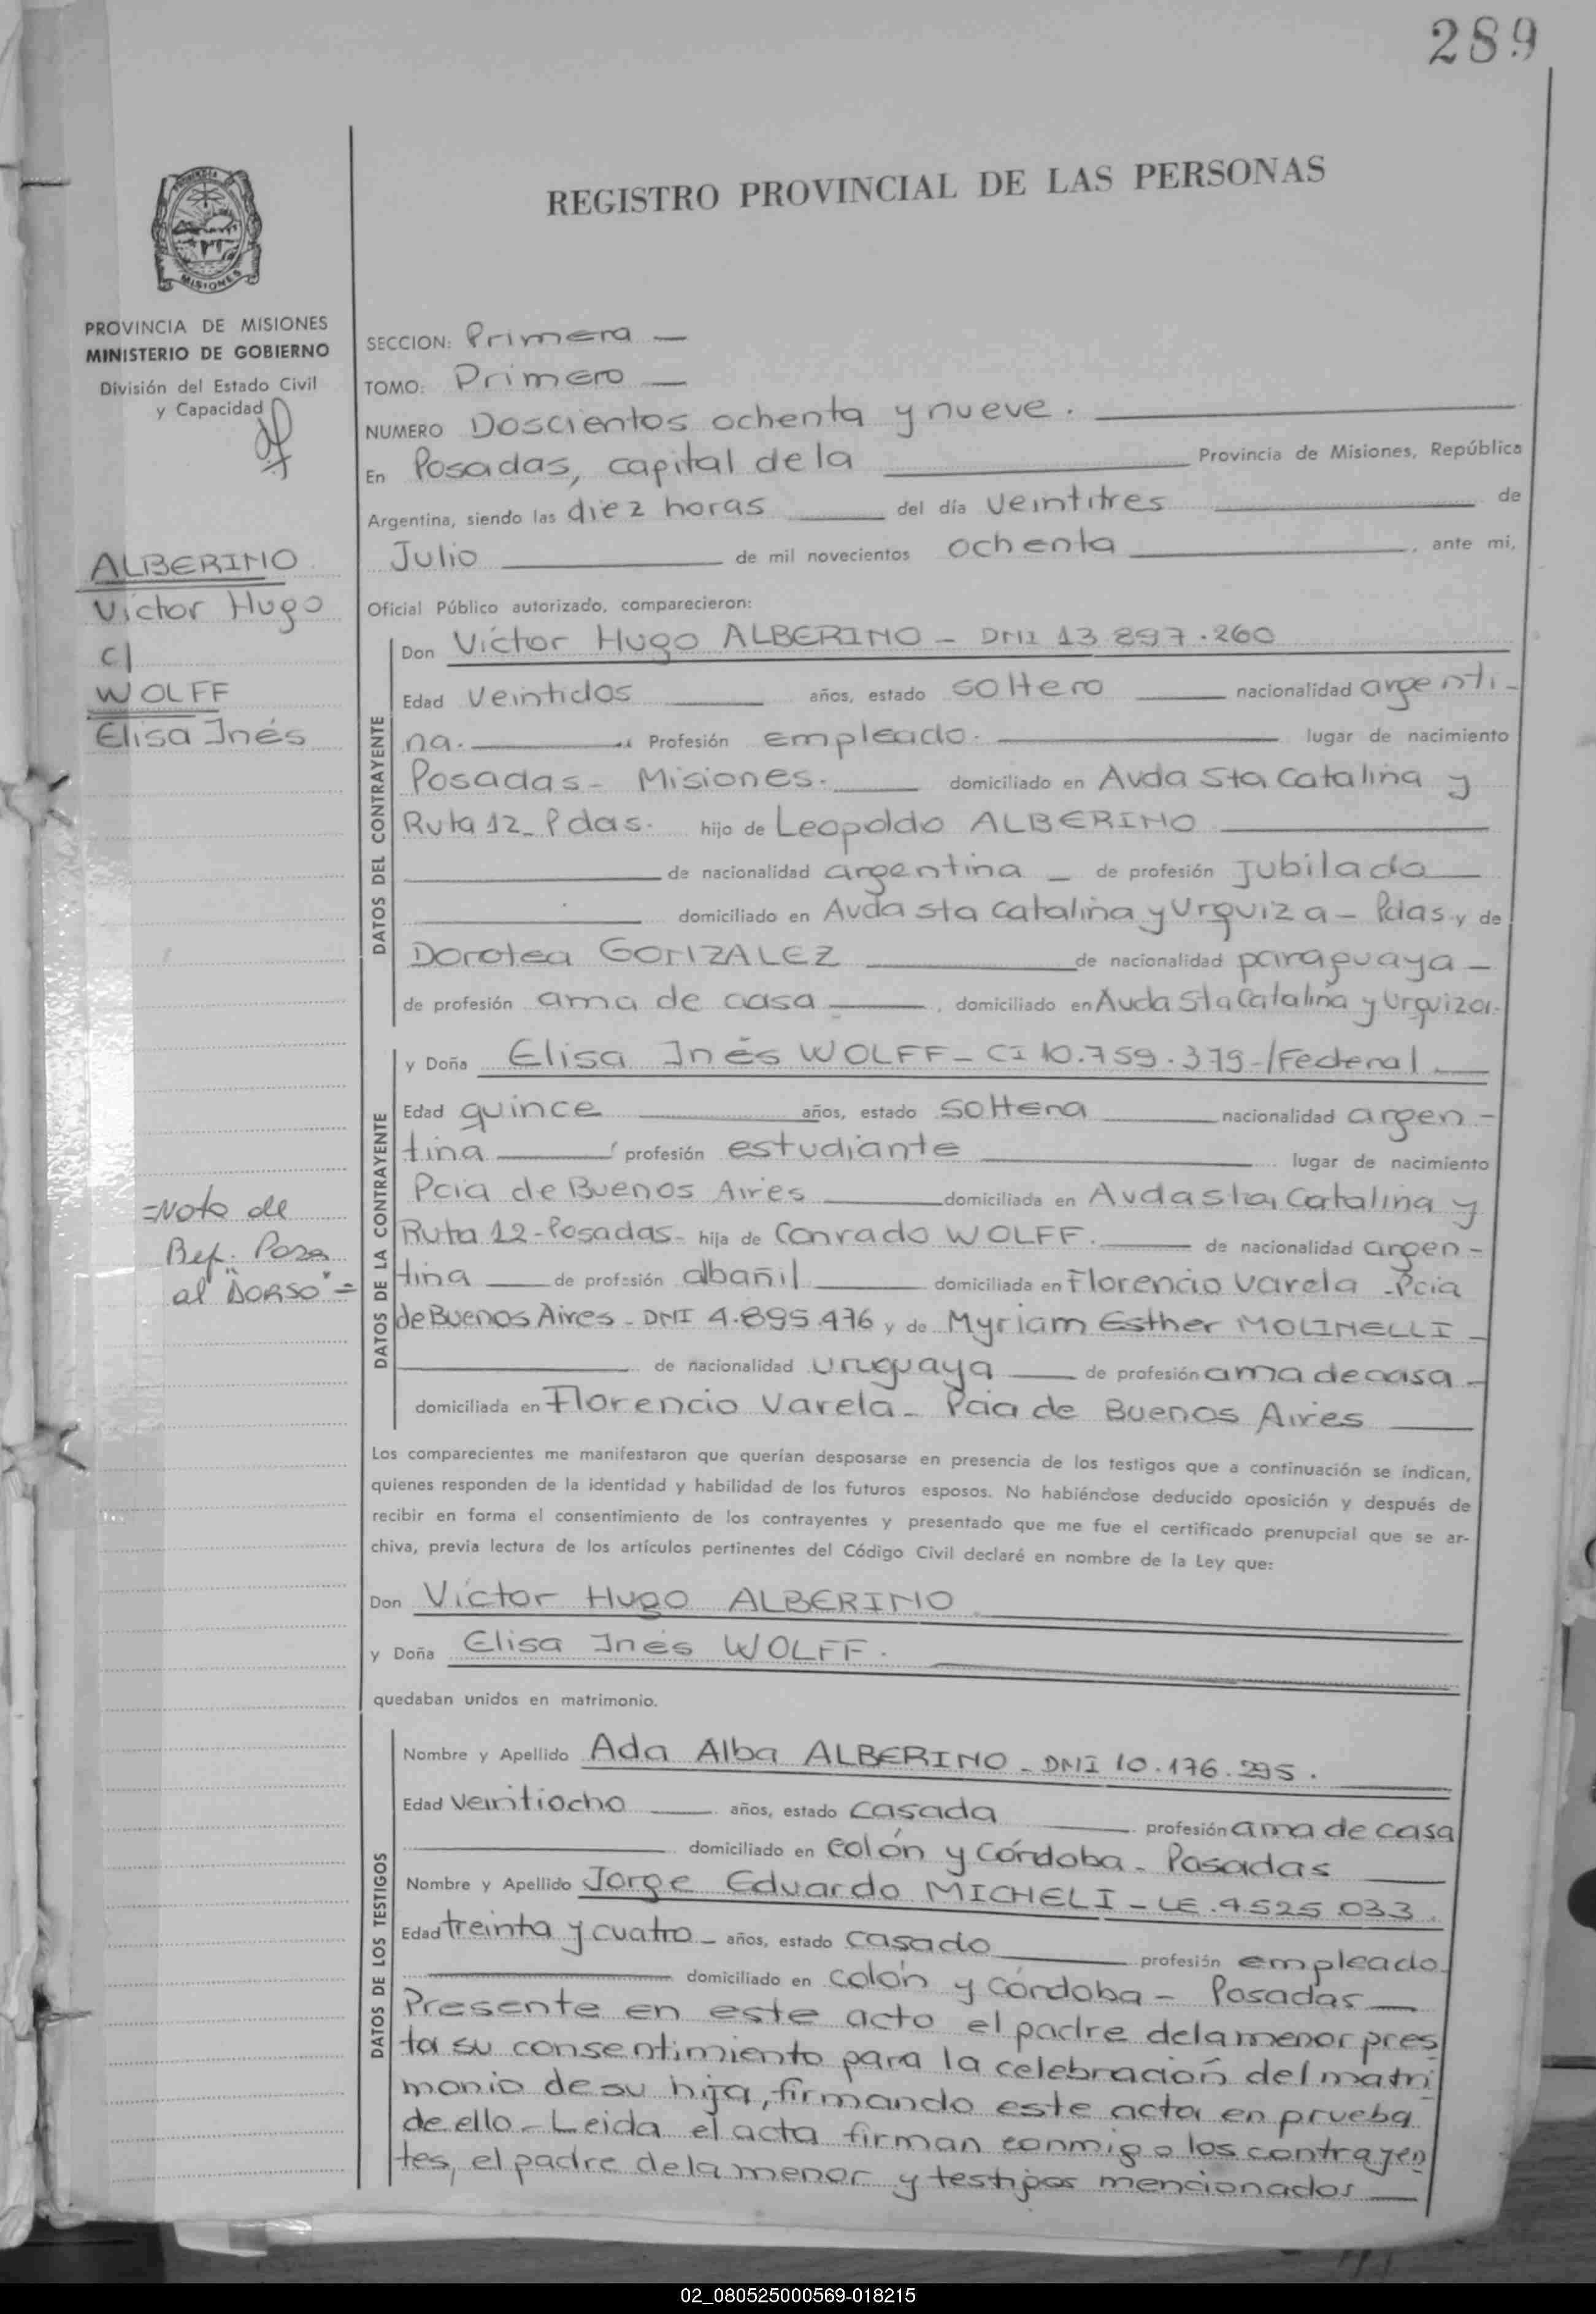 289
REGISTRO PROVINCIAL DE LAS PERSONAS
MISIONES
PROVINCIA DE MISIONES
MINISTERIO DE GOBIERNO
División del Estado Civil
y Capacidad
ALBERINO
Victor Hugo
c/
WOLFF
Elisa Inés
=Nota de
Ref. Pasa
al "DORSO"=
SECCION: Primera —
TOMO: Primero —
NUMERO Doscientos ochenta y nueve.
En Posadas, capital de la Provincia de Misiones, República
Argentina, siendo las diez horas del día veintitres de
Julio de mil novecientos ochenta, ante mi,
Oficial Público autorizado, comparecieron:
DATOS DEL CONTRAYENTE
Don Víctor Hugo ALBERINO - DNI 13.897.260
Edad veintidos años, estado soltero nacionalidad argenti-
na. Profesión empleado. lugar de nacimiento
Posadas - Misiones. domiciliado en Avda Sta Catalina y
Ruta 12 - Pdas. hijo de Leopoldo ALBERINO
de nacionalidad argentina - de profesión Jubilado
domiciliado en Avda Sta Catalina y Urquiza - Pdas y de
Dorotea GONZALEZ de nacionalidad paraguaya -
de profesión ama de casa, domiciliado en Avda Sta Catalina y Urquiza.-
DATOS DE LA CONTRAYENTE
y Doña Elisa Inés WOLFF - CI 10.759.379-/Federal
Edad quince años, estado soltera nacionalidad argen-
tina profesión estudiante lugar de nacimiento
Pcia de Buenos Aires domiciliada en Avda Sta Catalina y
Ruta 12 - Posadas - hija de Conrado WOLFF. de nacionalidad argen-
tina de profesión albañil domiciliada en Florencio Varela - Pcia
de Buenos Aires - DNI 4.895.476 y de Myriam Esther MOLINELLI -
de nacionalidad uruguaya de profesión ama de casa -
domiciliada en Florencio Varela - Pcia de Buenos Aires
Los comparecientes me manifestaron que querían desposarse en presencia de los testigos que a continuación se indican,
quienes responden de la identidad y habilidad de los futuros esposos. No habiéndose deducido oposición y después de
recibir en forma el consentimiento de los contrayentes y presentado que me fue el certificado prenupcial que se ar-
chiva, previa lectura de los artículos pertinentes del Código Civil declaré en nombre de la Ley que:
Don Víctor Hugo ALBERINO
y Doña Elisa Inés WOLFF.
quedaban unidos en matrimonio.
DATOS DE LOS TESTIGOS
Nombre y Apellido Ada Alba ALBERINO - DNI 10.176.295.
Edad veintiocho años, estado casada profesión ama de casa
domiciliado en Colón y Córdoba - Posadas
Nombre y Apellido Jorge Eduardo MICHELI - LE.4.525.033.
Edad treinta y cuatro - años, estado casado profesión empleado
domiciliado en Colón y Córdoba - Posadas
Presente en este acto el padre de la menor pres
ta su consentimiento para la celebración del matri
monio de su hija, firmando este acta en prueba
de ello - Leida el acta firman conmigo los contrayen
tes, el padre de la menor y testigos mencionados
02_080525000569-018215